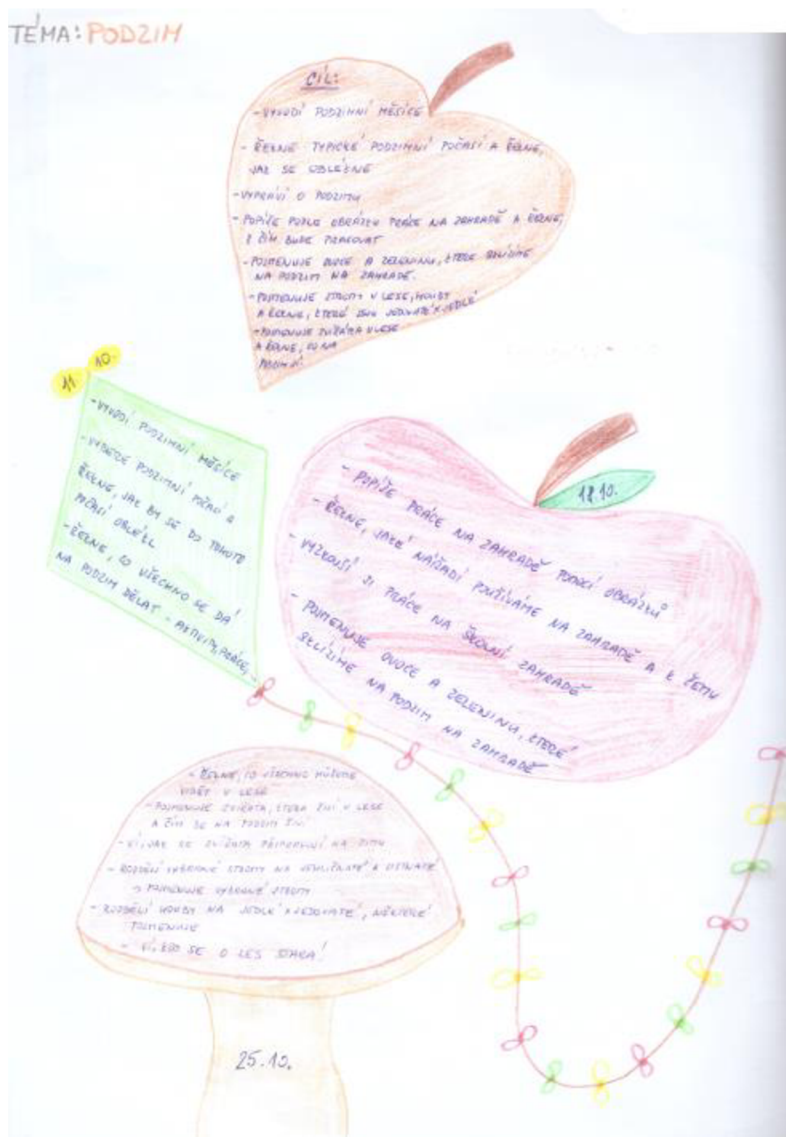 TÉMA: PODZIM
CÍL:
- VYVODÍ PODZIMNÍ MĚSÍCE
- ŘEKNE TYPICKÉ PODZIMNÍ POČASÍ A ŘEKNE,
JAK SE OBLÉKNE
- VYPRÁVÍ O PODZIMU
- POPÍŠE PODLE OBRÁZKU PRÁCE NA ZAHRADĚ A ŘEKNE,
S ČÍM BUDE PRACOVAT
- POJMENUJE OVOCE A ZELENINU, KTERÉ SKLÍZÍME
NA PODZIM NA ZAHRADĚ.
- POJMENUJE STROMY V LESE, HOUBY
A ŘEKNE, KTERÉ JSOU JEDOVATÉ X JEDLÉ
- POJMENUJE ZVÍŘATA V LESE
A ŘEKNE, CO NA
PODZIM JÍ.
11. 10.
- VYVODÍ PODZIMNÍ MĚSÍCE
- VYBERE PODZIMNÍ POČASÍ A
ŘEKNE, JAK BY SE DO TOHOTO
POČASÍ OBLÉKL
- ŘEKNE, CO VŠECHNO SE DÁ
NA PODZIM DĚLAT - AKTIVITY, PRÁCE,
18.10.
- POPÍŠE PRÁCE NA ZAHRADĚ POMOCÍ OBRÁZKŮ
- ŘEKNE, JAKÉ NÁŘADÍ POUŽÍVÁME NA ZAHRADĚ A K ČEMU
- VYZKOUŠÍ SI PRÁCE NA ŠKOLNÍ ZAHRADĚ
- POJMENUJE OVOCE A ZELENINU, KTERÉ
SKLÍZÍME NA PODZIM NA ZAHRADĚ
- ŘEKNE, CO VŠECHNO MŮŽEME
VIDĚT V LESE
- POJMENUJE ZVÍŘATA, KTERÁ ŽIJÍ V LESE
A ČÍM SE NA PODZIM ŽIVÍ
- VÍ, JAK SE ZVÍŘATA PŘIPRAVUJÍ NA ZIMU
- ROZDĚLÍ VYBRANÉ STROMY NA JEHLIČNATÉ A LISTNATÉ
→ POJMENUJE VYBRANÉ STROMY
- ROZDĚLÍ HOUBY NA JEDLÉ X JEDOVATÉ, NĚKTERÉ
POJMENUJE
- VÍ, KDO SE O LES STARÁ!
25.10.